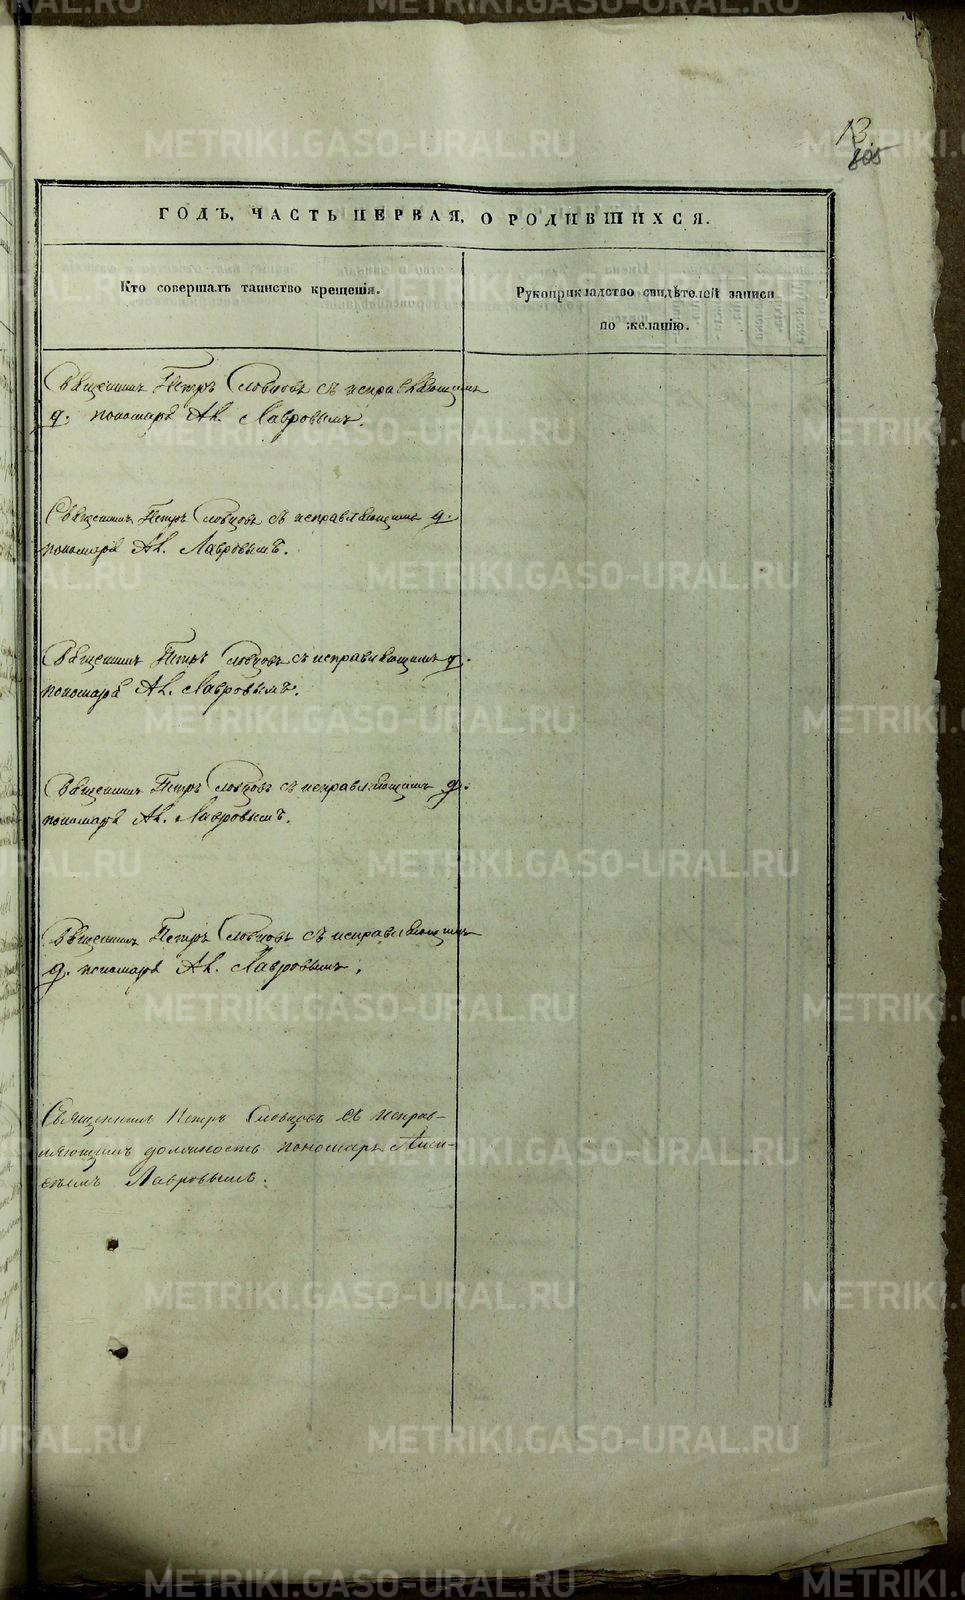 13.
805
ГОДЪ, ЧАСТЬ ПЕРВАЯ, О РОДИВШИХСЯ.
Кто совершалъ таинство крещенія.
Рукоприкладство свидѣтелей записи
по желанію.
Священникъ Петръ Словцовъ съ исправляющимъ
д. пономаря Ал. Лавровымъ.
Священникъ Петръ Словцовъ съ исправляющимъ д.
пономаря Ал. Лавровымъ.
Священникъ Петръ Словцовъ съ исправляющимъ д.
пономаря Ал. Лавровымъ.
Священникъ Петръ Словцовъ съ исправляющимъ д.
пономаря Ал. Лавровымъ.
Священникъ Петръ Словцовъ съ исправляющимъ
д. пономаря Ал. Лавровымъ.
Священникъ Петръ Словцовъ съ исправ-
ляющимъ должность пономаря
Лавровымъ.
METRIKI.GASO-URAL.RU